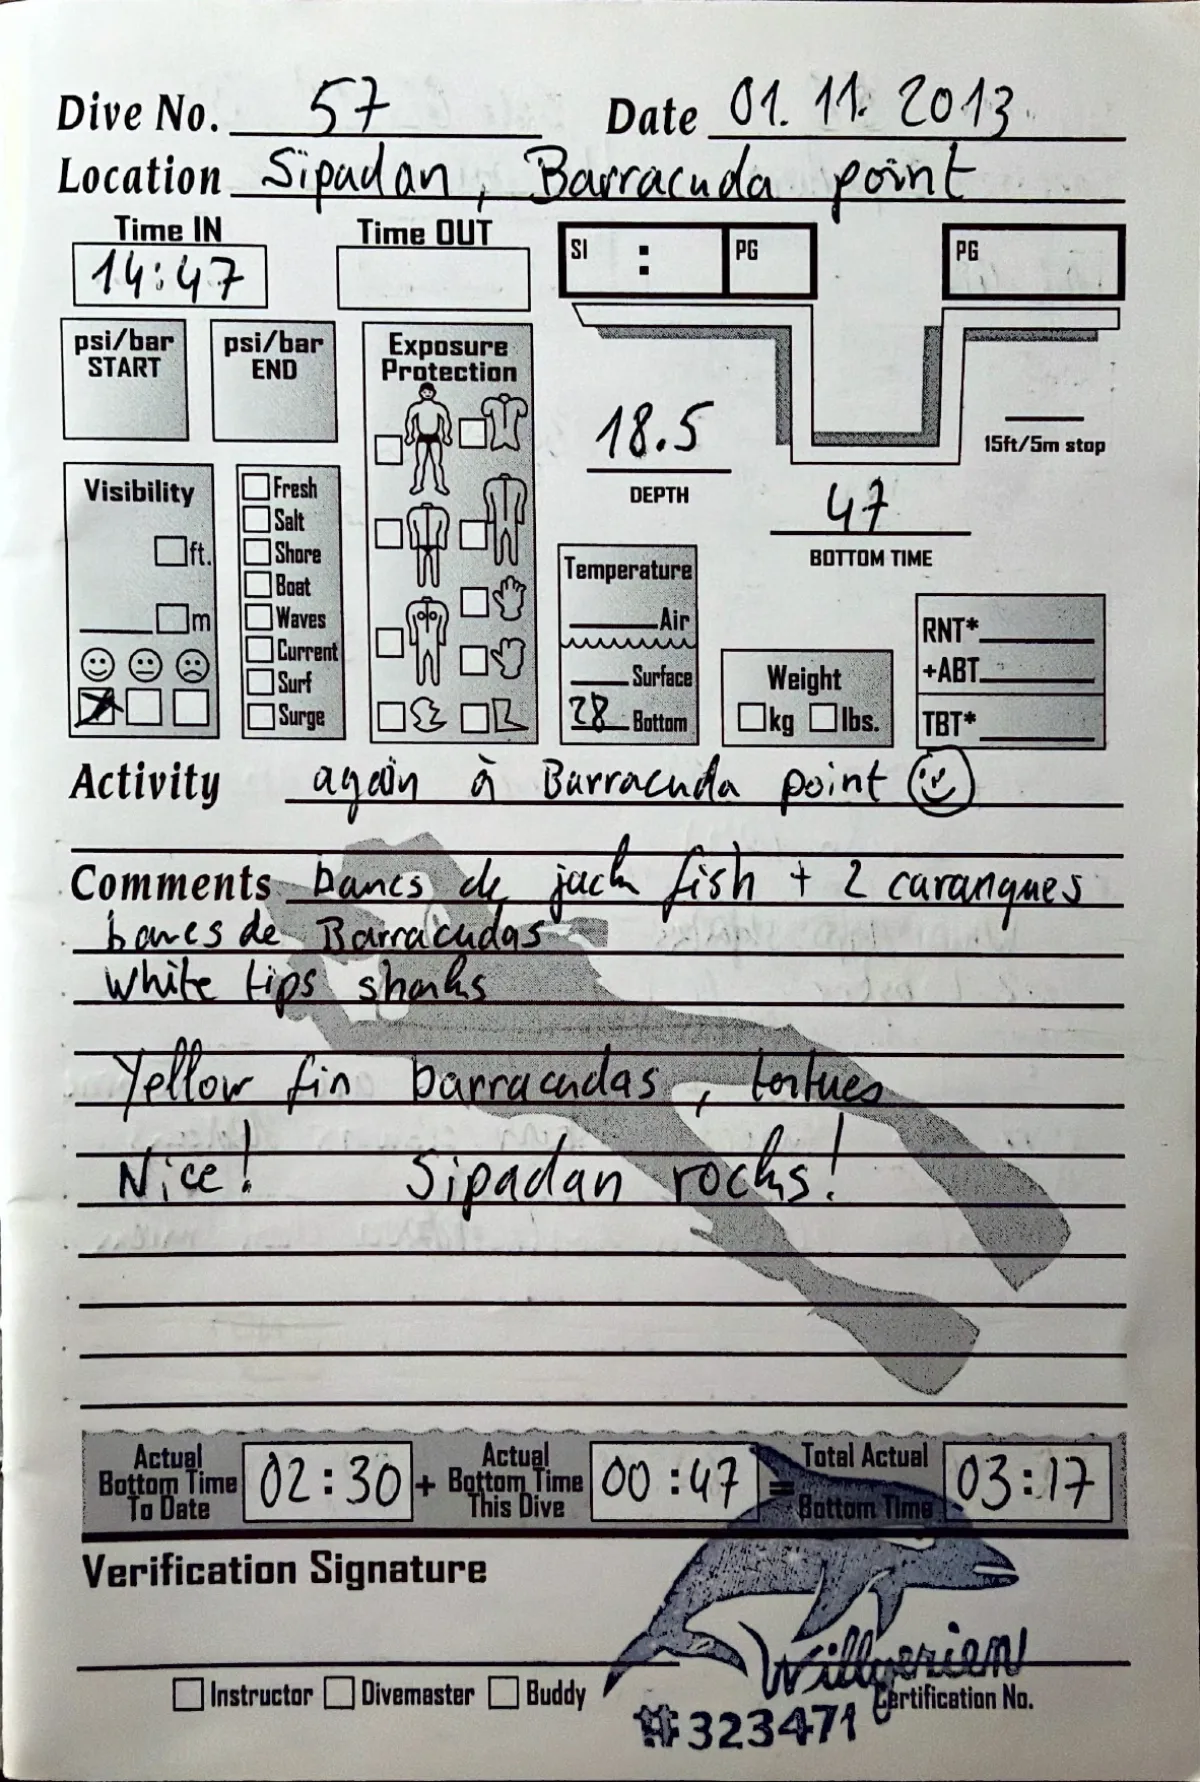 Dive No. 57 Date 01. 11. 2013
Location Sipadan, Barracuda point
Time IN Time OUT
14:47
SI : PG PG
psi/bar START psi/bar END
Exposure Protection
18.5
DEPTH
15ft/5m stop
47
BOTTOM TIME
Visibility
ft.
m
Fresh
Salt
Shore
Boat
Waves
Current
Surf
Surge
Temperature
Air
Surface
28 Bottom
Weight
kg lbs.
RNT*
+ABT
TBT*
Activity again à Barracuda point
Comments bancs de jack fish + 2 carangues
bancs de Barracudas
White tips sharks
Yellow fin barracudas, tortues
Nice! Sipadan rocks!
Actual Bottom Time To Date 02:30 + Actual Bottom Time This Dive 00:47 = Total Actual Bottom Time 03:17
Verification Signature
Instructor Divemaster Buddy
Certification No.
#323471